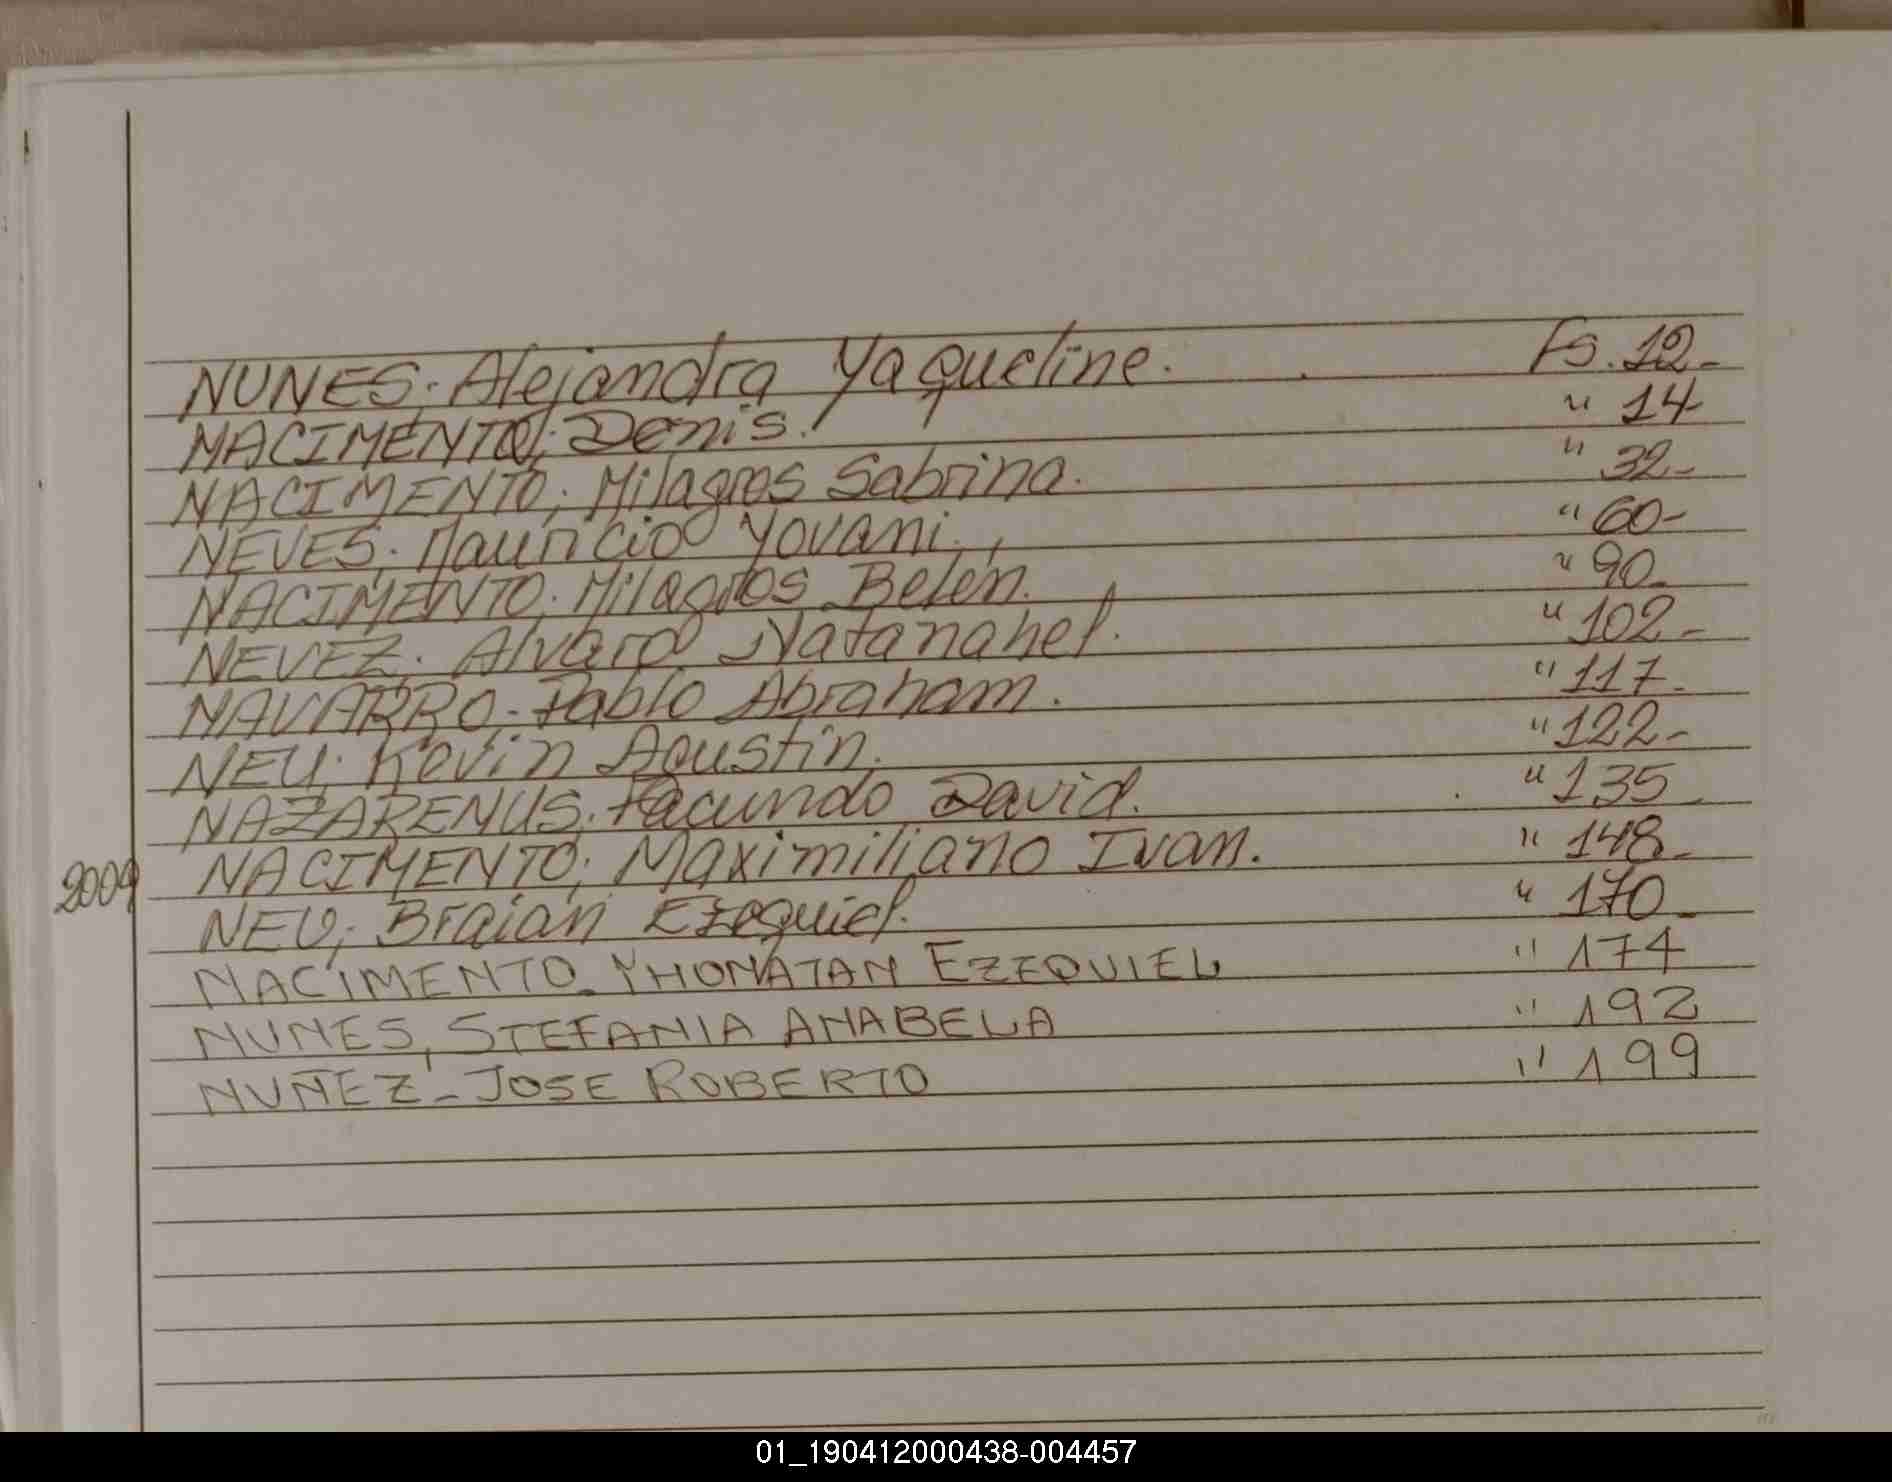 NUNES; Alejandra Yaqueline. Fs. 12-
NACIMENTO; Denis. " 14-
NACIMENTO; Milagros Sabrina. " 32-
NEVES; Mauricio Yovani. " 60-
NACIMENTO; Milagros Belén. " 90-
NEVEZ; Alvaro Natanahel. " 102-
NAVARRO- Pablo Abraham. " 117-
NEU; Kevin Agustin. " 122-
NAZARENUS; Facundo David. " 135-
2009 NACIMENTO; Maximiliano Ivan. " 148-
NEU; Braian Ezequiel. " 170-
NACIMENTO- YHONATAN EZEQUIEL " 174
NUNES, STEFANIA ANABELA " 192
NUÑEZ- JOSE ROBERTO " 199
01_190412000438-004457